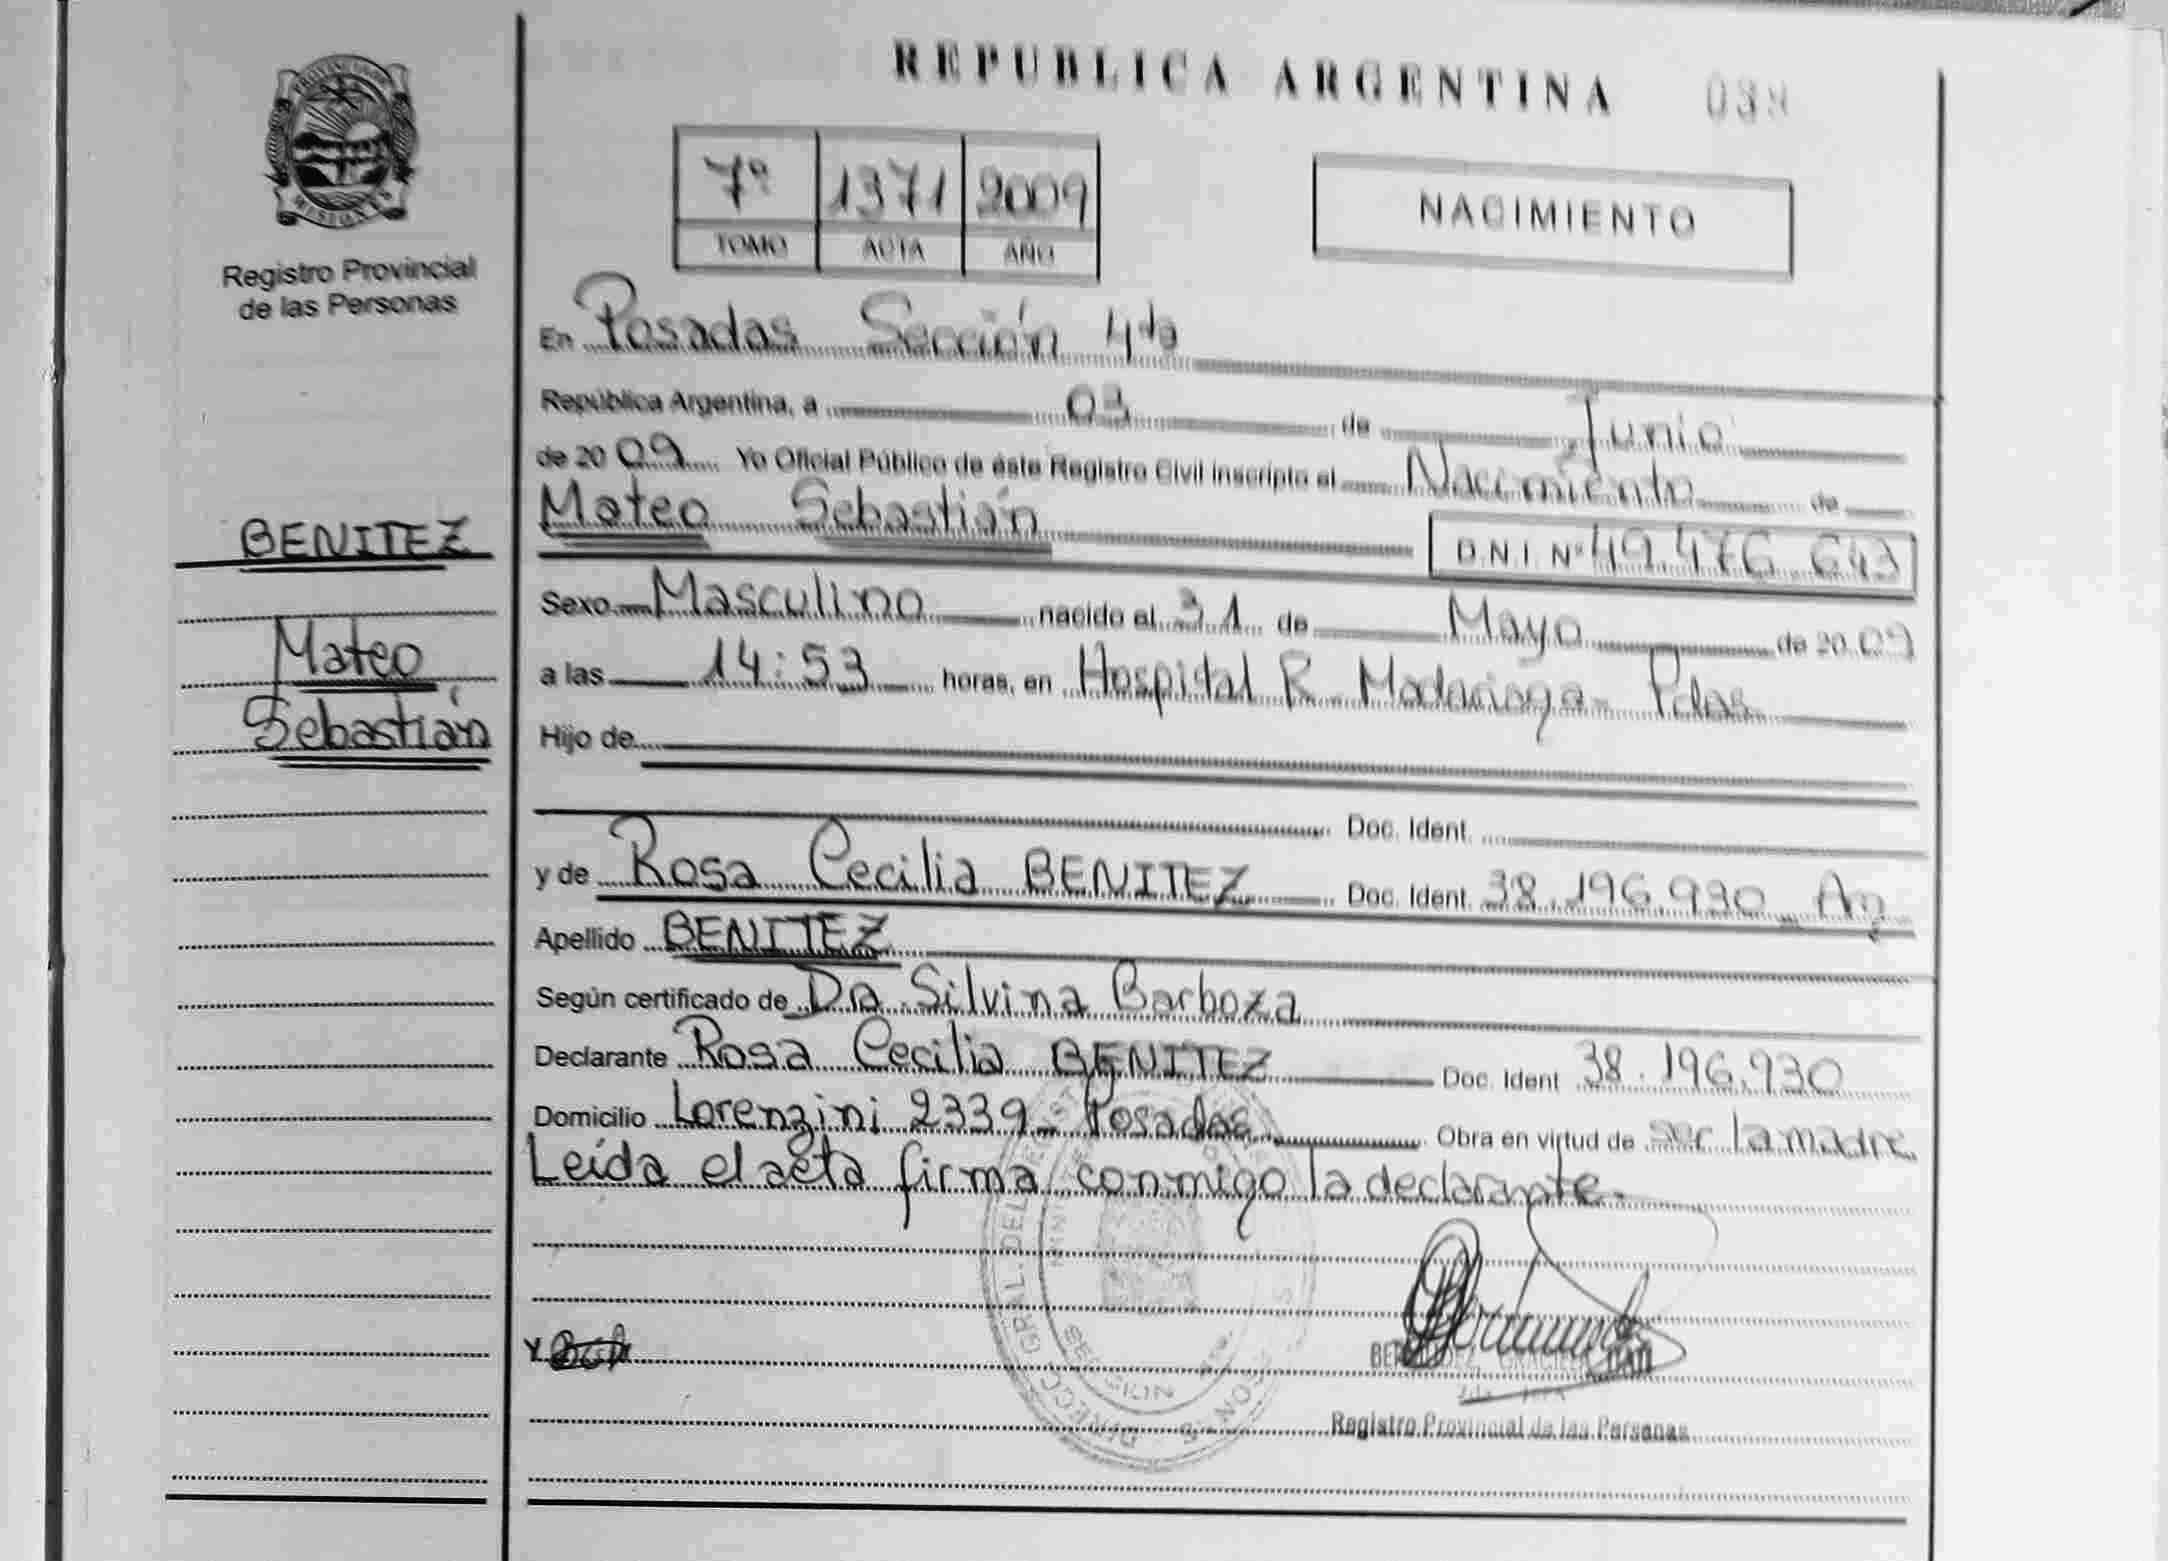 PROVINCIA DE
MISIONES
Registro Provincial
de las Personas
BENITEZ
Mateo
Sebastián
REPUBLICA ARGENTINA 038
7º 1371 2009
TOMO ACTA AÑO
NACIMIENTO
En Posadas Sección 4ta
República Argentina, a 03 de Junio
de 20 09 Yo Oficial Público de éste Registro Civil inscripto el Nacimiento de
Mateo Sebastián D.N.I. Nº 49.476.643
Sexo Masculino nacido el 31 de Mayo de 20 09
a las 14:53 horas, en Hospital R. Madariaga- Pdas
Hijo de
Doc. Ident.
y de Rosa Cecilia BENITEZ Doc. Ident. 38.196.930 Arg
Apellido BENITEZ
Según certificado de Dra. Silvina Barboza
Declarante Rosa Cecilia BENITEZ Doc. Ident 38.196.930
Domicilio Lorenzini 2339- Posadas Obra en virtud de ser la madre
Leída el acta firma conmigo la declarante.
DIRECC. GRAL. DEL
MISIONES
Registro Provincial de las Personas